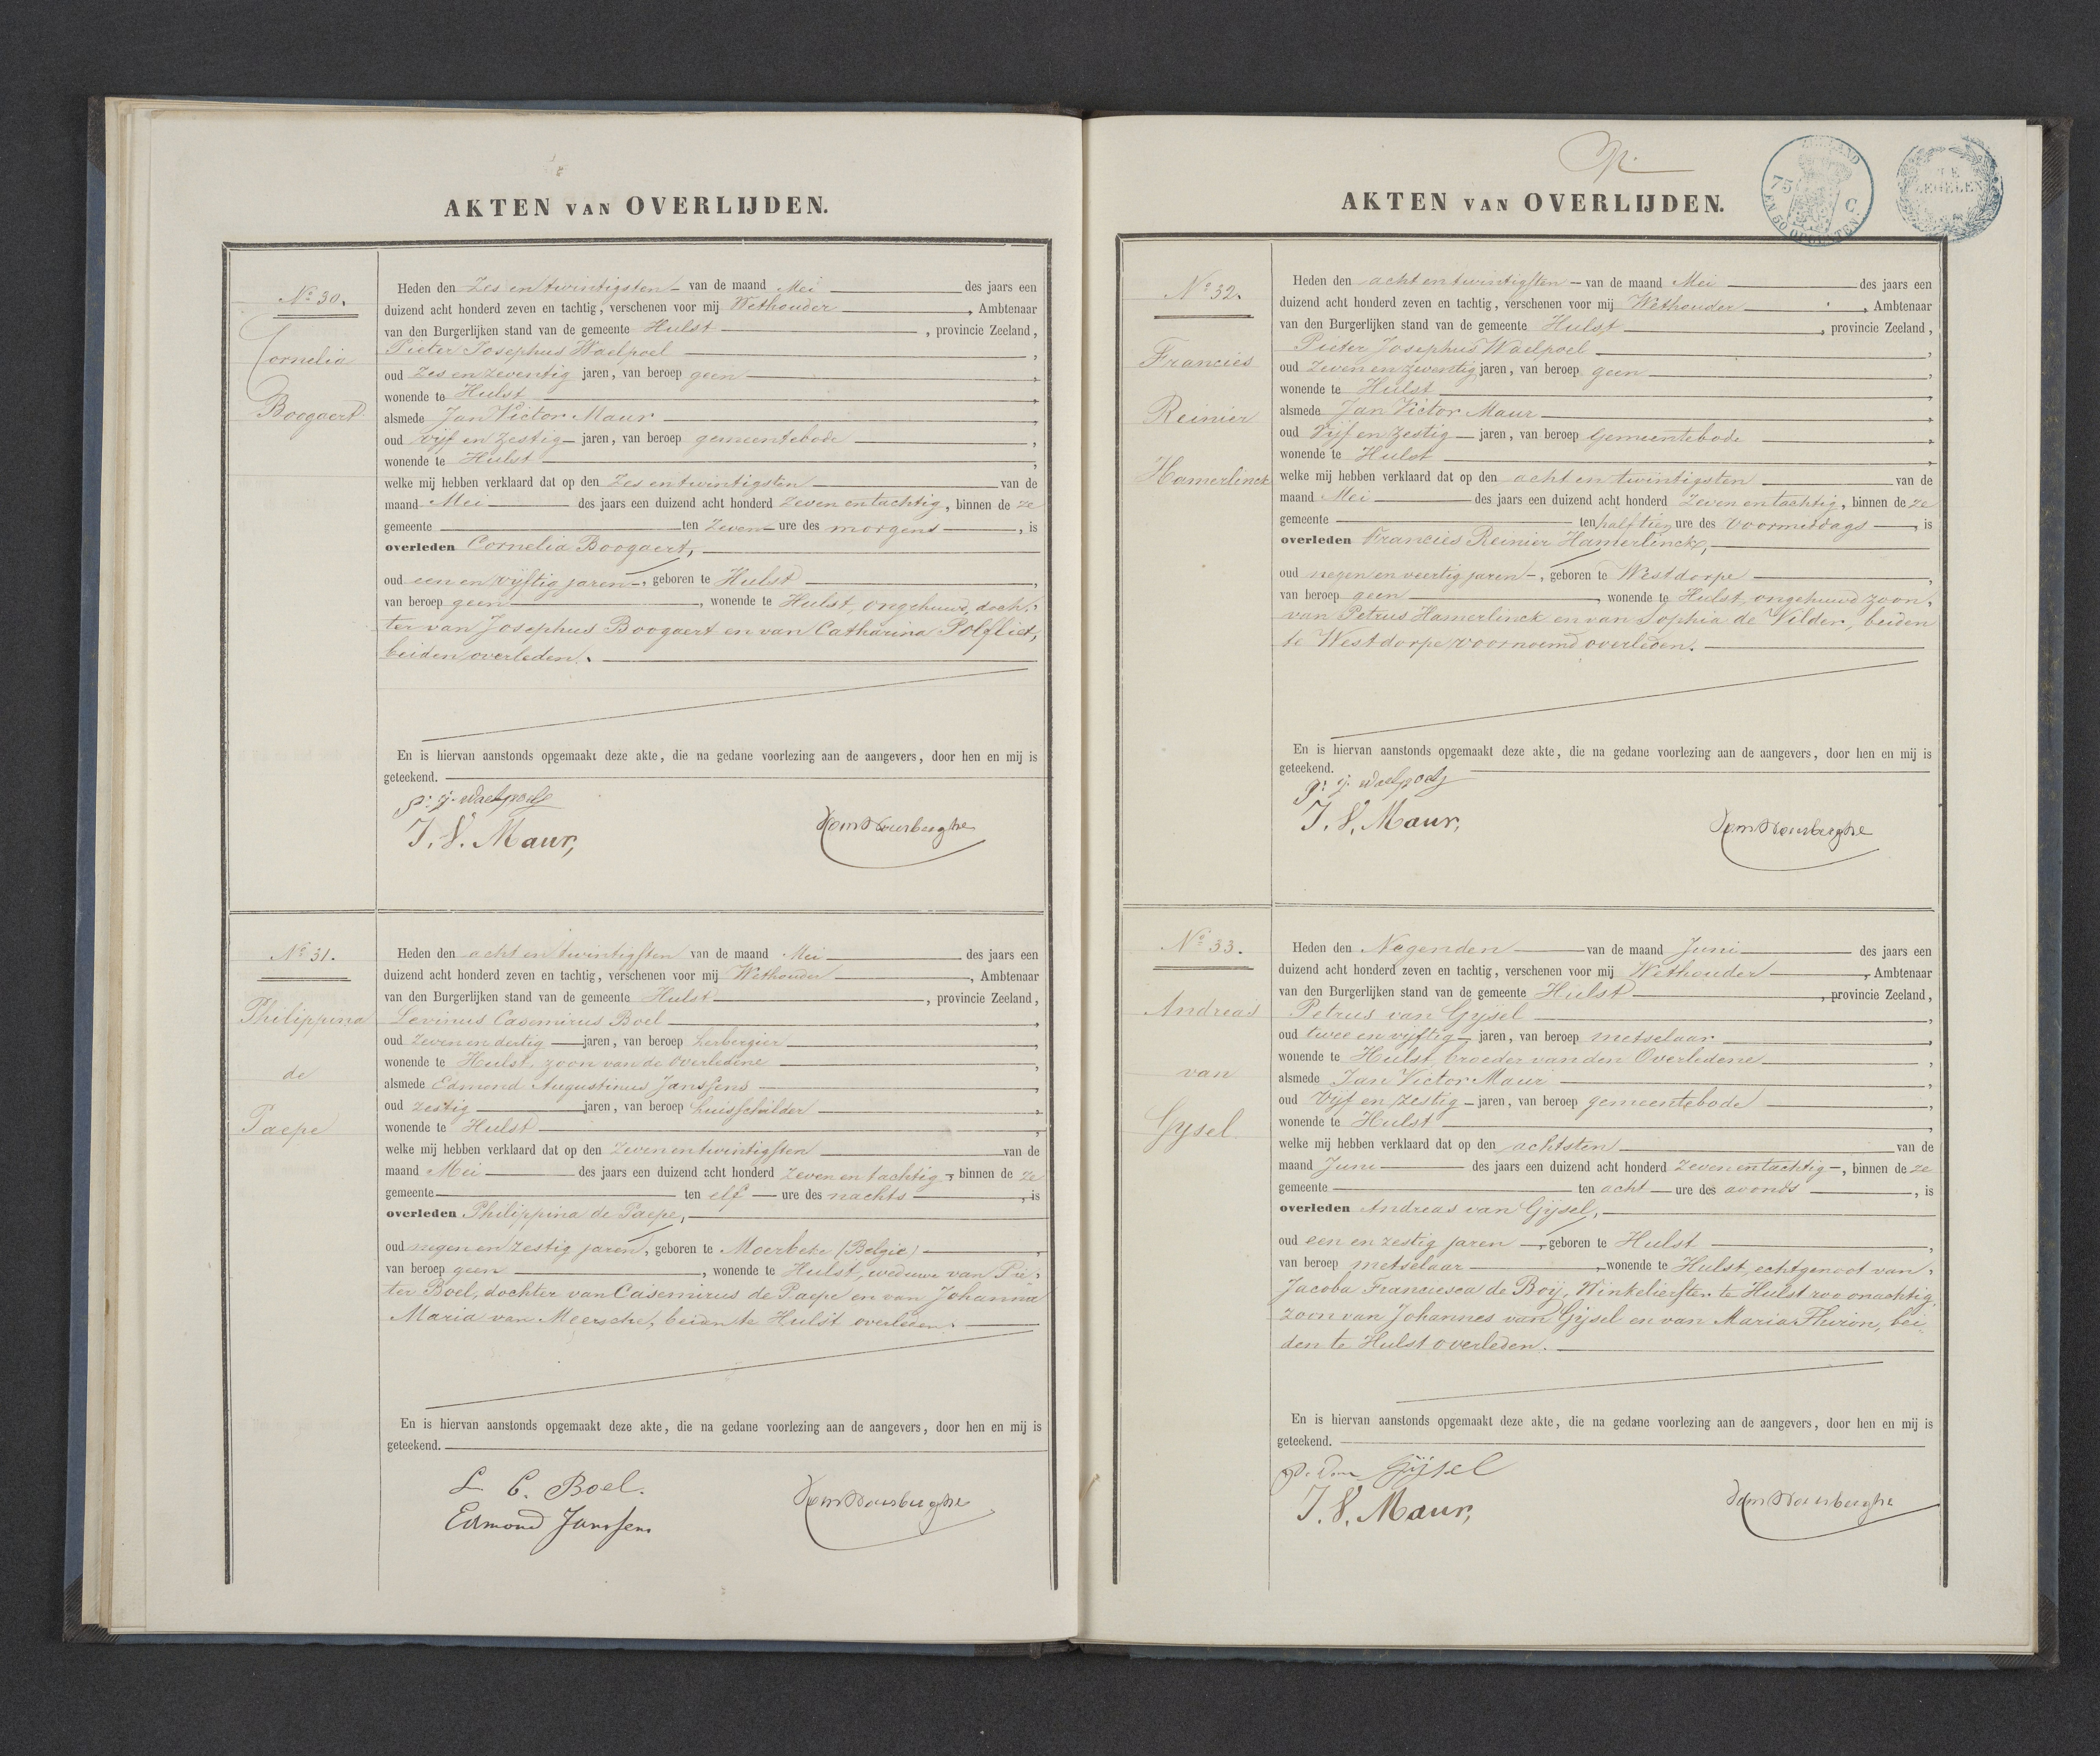 AKTEN VAN OVERLIJDEN.
No 30.
Cornelia
Boogaert
Heden den Zes en twintigsten van de maand Mei des jaars een
duizend acht honderd zeven en tachtig, verschenen voor mij Wethouder, Ambtenaar
van den Burgerlijken stand van de gemeente Hulst, provincie Zeeland,
Pieter Josephus Waelpoel,
oud Zes en zeventig jaren, van beroep geen,
wonende te Hulst,
alsmede Jan Victor Maur,
oud vijf en zestig jaren, van beroep gemeentebode,
wonende te Hulst,
welke mij hebben verklaard dat op den Zes en twintigsten van de
maand Mei des jaars een duizend acht honderd zeven en tachtig, binnen de ze
gemeente ten Zeven ure des morgens, is
overleden Cornelia Boogaert,
oud een en vijftig jaren, geboren te Hulst,
van beroep geen, wonende te Hulst, ongehuwd, doch-
ter van Josephus Boogaert en van Catharina Polfliet,
beiden overleden.
En is hiervan aanstonds opgemaakt deze akte, die na gedane voorlezing aan de aangevers, door hen en mij is
geteekend.
P. J. Waelpoel
J. V. Maur,
No 31.
Philippina
de
Paepe
Heden den acht en twintigsten van de maand Mei des jaars een
duizend acht honderd zeven en tachtig, verschenen voor mij Wethouder, Ambtenaar
van den Burgerlijken stand van de gemeente Hulst, provincie Zeeland,
Levinus Casemirus Boel,
oud zeven en dertig jaren, van beroep herbergier,
wonende te Hulst, zoon van de Overledene,
alsmede Edmond Augustinus Janssens,
oud zestig jaren, van beroep huisschilder,
wonende te Hulst,
welke mij hebben verklaard dat op den zeven en twintigsten van de
maand Mei des jaars een duizend acht honderd zeven en tachtig, binnen de ze
gemeente ten elf ure des nachts, is
overleden Philippina de Paepe,
oud negen en zestig jaren, geboren te Moerbeke (Belgie),
van beroep geen, wonende te Hulst, weduwe van Pie-
ter Boel, dochter van Casemirus de Paepe en van Johanna
Maria van Meersche, beiden te Hulst overleden.
En is hiervan aanstonds opgemaakt deze akte, die na gedane voorlezing aan de aangevers, door hen en mij is
geteekend.
L. C. Boel.
Edmond Janssens
AKTEN VAN OVERLIJDEN.
ZEELAND
EN 50 OPCENTEN
C.
ZEGELEN
No 32.
Francies
Reinier
Hamerlinck
Heden den acht en twintigsten van de maand Mei des jaars een
duizend acht honderd zeven en tachtig, verschenen voor mij Wethouder, Ambtenaar
van den Burgerlijken stand van de gemeente Hulst, provincie Zeeland,
Pieter Josephus Waelpoel,
oud zeven en zeventig jaren, van beroep geen,
wonende te Hulst,
alsmede Jan Victor Maur,
oud Vijf en zestig jaren, van beroep Gemeentebode,
wonende te Hulst,
welke mij hebben verklaard dat op den acht en twintigsten van de
maand Mei des jaars een duizend acht honderd zeven en tachtig, binnen de ze
gemeente ten half tien ure des Voormiddags, is
overleden Francies Reinier Hamerlinck,
oud negen en veertig jaren, geboren te Westdorpe,
van beroep geen, wonende te Hulst, ongehuwd zoon,
van Petrus Hamerlinck en van Sophia de Vilder, beiden
te Westdorpe voornoemd overleden.
En is hiervan aanstonds opgemaakt deze akte, die na gedane voorlezing aan de aangevers, door hen en mij is
geteekend.
P. J. Waelpoel
J. V. Maur,
No 33.
Andreas
van
Gysel
Heden den Negenden van de maand Juni des jaars een
duizend acht honderd zeven en tachtig, verschenen voor mij Wethouder, Ambtenaar
van den Burgerlijken stand van de gemeente Hulst, provincie Zeeland,
Petrus van Gysel,
oud twee en vijftig jaren, van beroep metselaar,
wonende te Hulst, broeder van den Overledene,
alsmede Jan Victor Maur,
oud Vijf en zestig jaren, van beroep gemeentebode,
wonende te Hulst,
welke mij hebben verklaard dat op den achtsten van de
maand Juni des jaars een duizend acht honderd zeven en tachtig, binnen de ze
gemeente ten acht ure des avonds, is
overleden Andreas van Gijsel,
oud een en zestig jaren, geboren te Hulst,
van beroep metselaar, wonende te Hulst, echtgenoot van,
Jacoba Franciesca de Boij, Winkelierster te Hulst woonachtig,
zoon van Johannes van Gijsel en van Maria Thiron, bei-
den te Hulst overleden.
En is hiervan aanstonds opgemaakt deze akte, die na gedane voorlezing aan de aangevers, door hen en mij is
geteekend.
P. Van Gijsel
J. V. Maur,